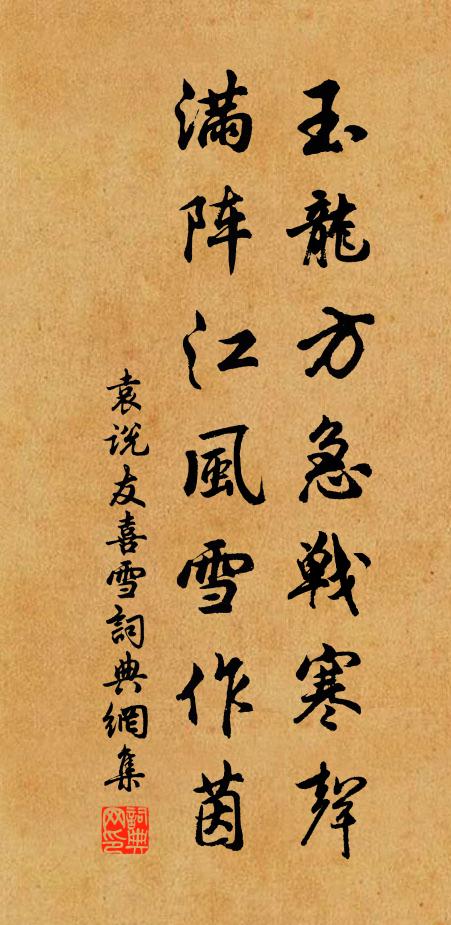 玉龍方急戰寒聲
满阵江風雪作茵
袁说友喜雪詞典網集
詞典网印